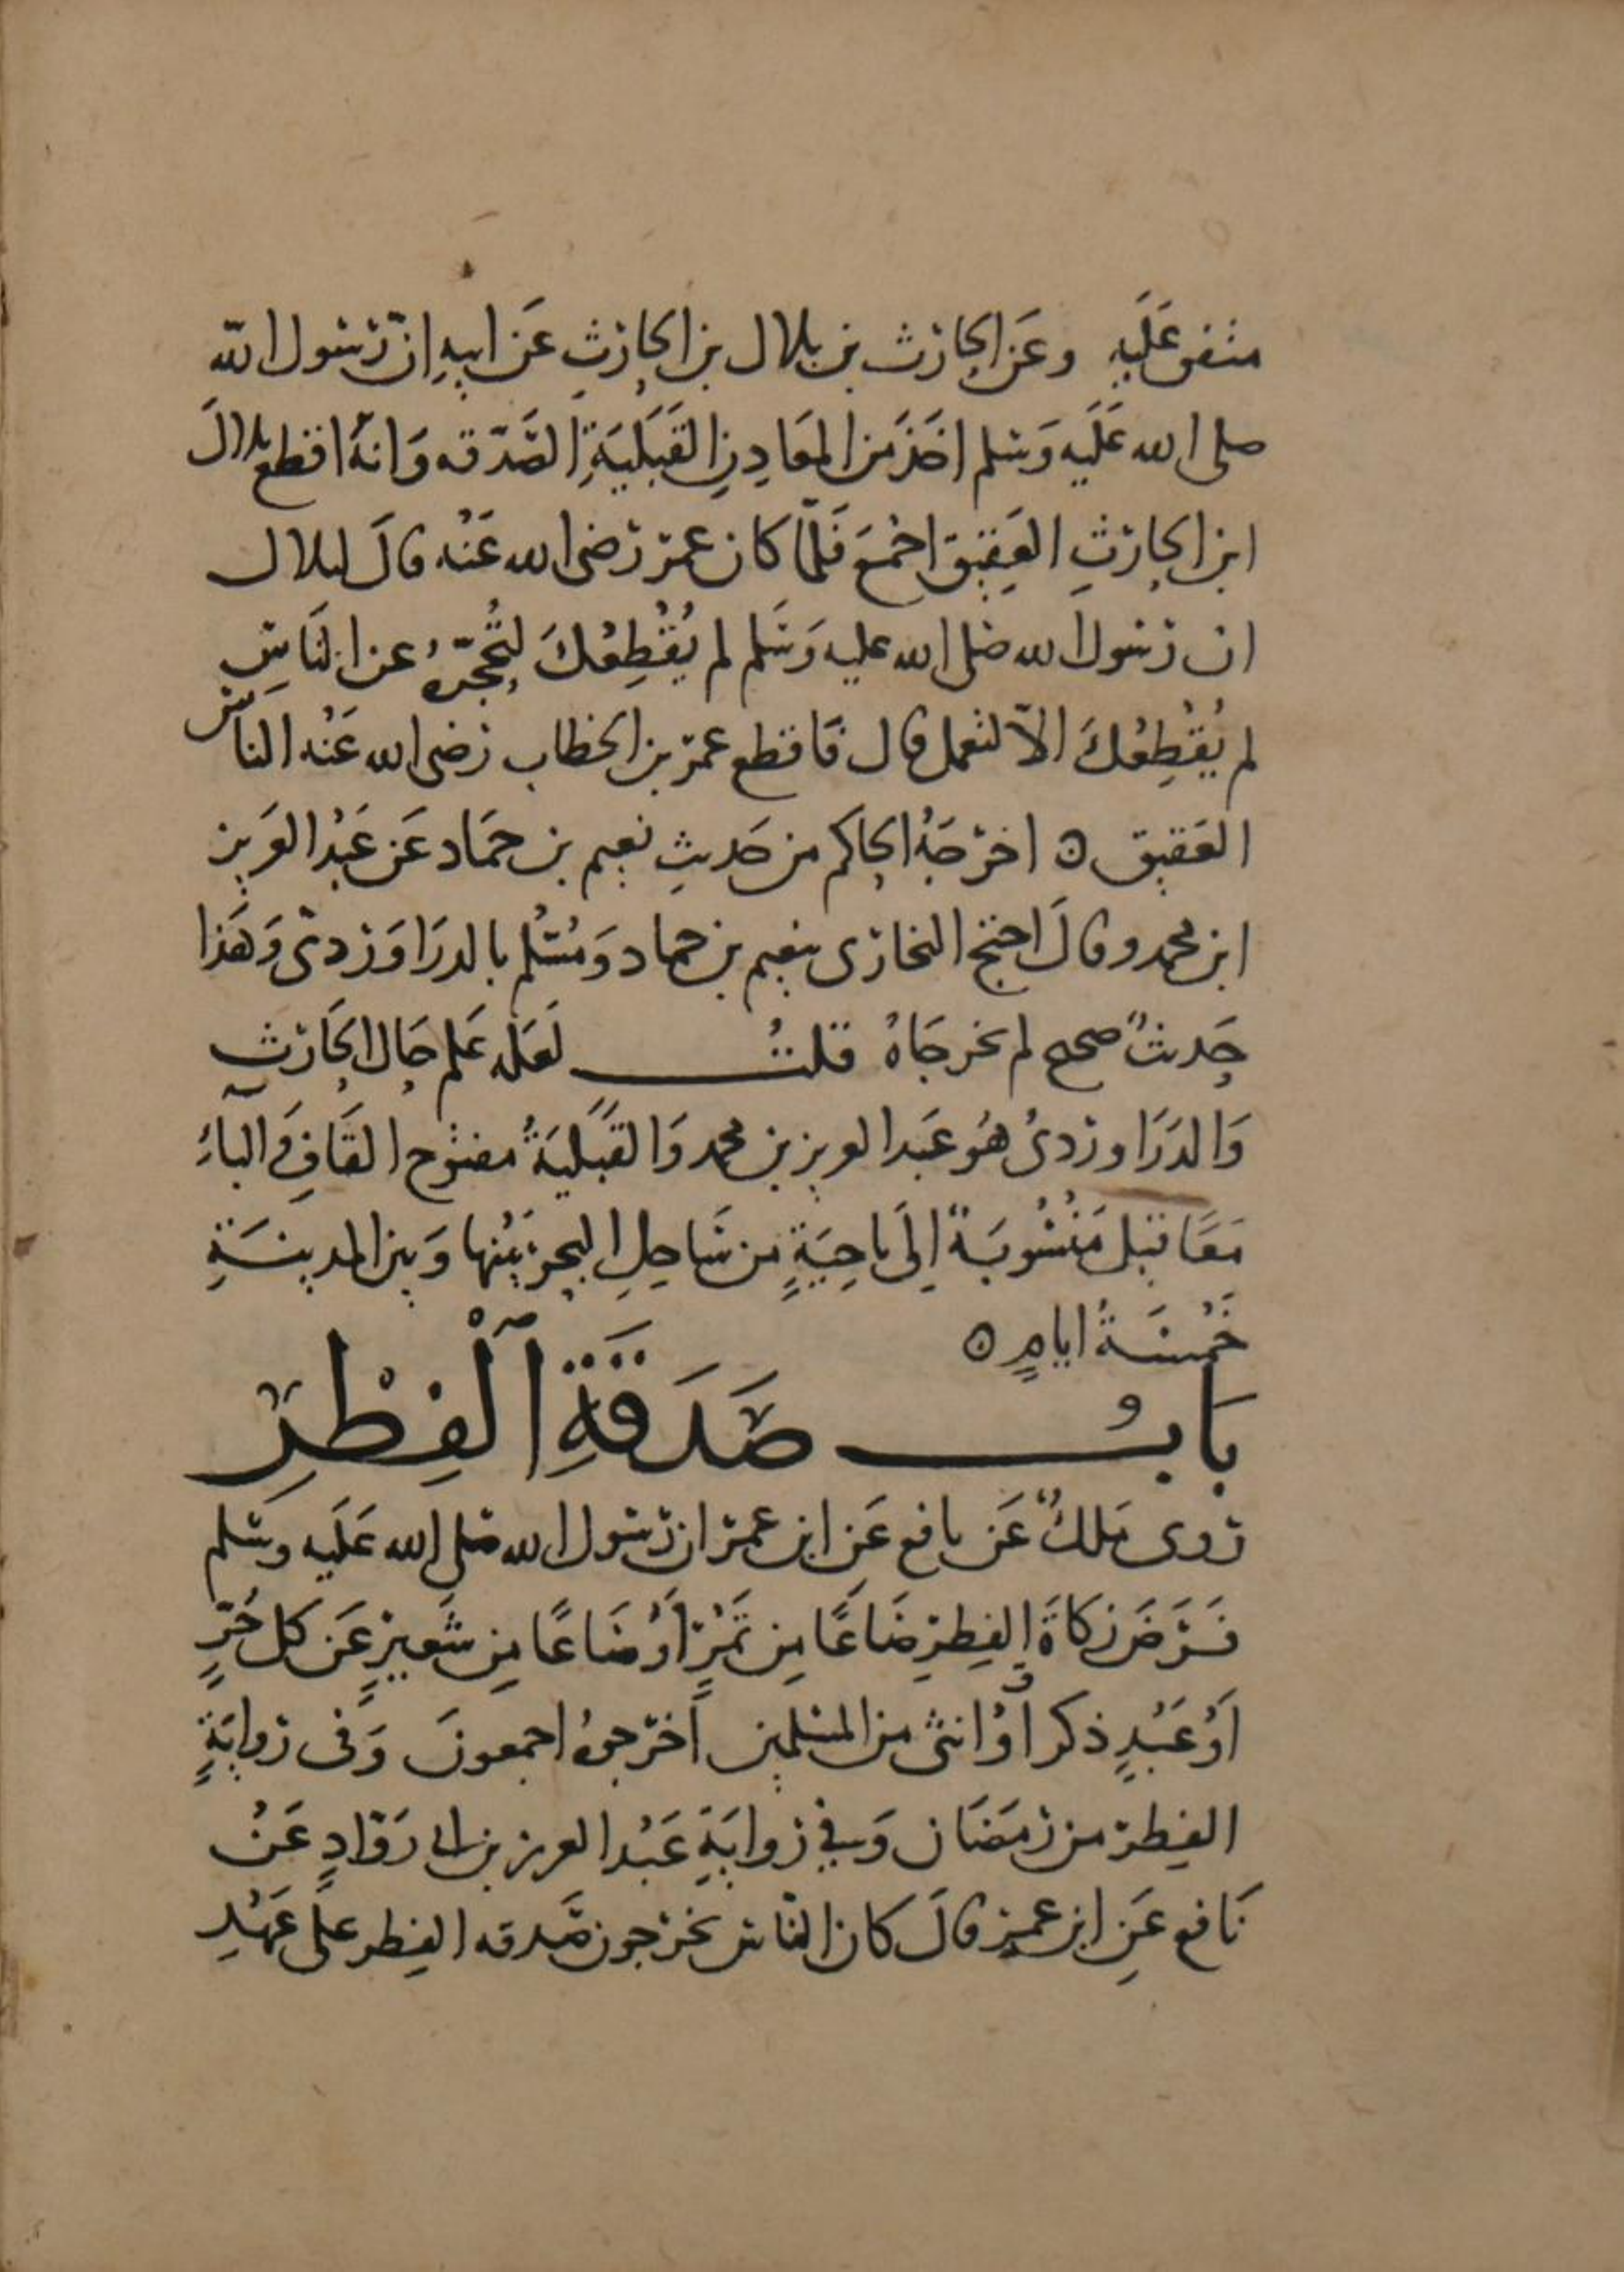 متفق عَلَيهِ وعَن الحارث بن بلال بن الحارثِ عَن ابيهِ انّ رسول الله
صلى الله عَلَيه وَسلم اخَذ مَن المعَادِنِ القَبَلَيَةِ الصَّدَقه وَانهُ اقطع بلالَ
ابن الحارثِ العَقِيق اجْمَعَ فَلمّا كان عمر رضى الله عَنْه قالَ لبلال
ان رسول الله صلى الله عليه وَسَلم لم يُقْطِعُكَ لتُحجّرهُ عن النَاسِ
لم يُقْطِعُكَ الاّ لتعمل قال فَاقطع عمر بن الخطاب رضى الله عَنْه الناسَ
العَقيق ٥ اخرَجَهُ الحاكم من حَديثِ نعيم بن حمَاد عَن عَبْد العَزيز
ابن محمد وقالَ احتج البخارى بنعيم بن حماد وَمُسْلم بالدرَاوَردىّ وَهَذا
حَديثٌ صحيح لم يخرجَاهُ قلتُ لَعَله عَلم حَال الحَارث
وَالدرَاوردىُ هوَ عَبد العزيز بن محمد وَالقَبَليَةُ مفتوح القَافِ وَالباءُ
مَعًا قبل مَنْسُوبَةٌ إلَى ناحِيَةٍ من سَاحِلِ البحر بَيْنها وَبين المدينَةِ
خَمْسَةُ ايامٍ ٥
بَابُ صَدَقَةِ ٱلْفِطْرِ
روى مَلكٌ عَن نافع عَن ابن عمر ان رسول الله صَلى الله عَلَيه وسَلم
فَرَضَ زكاةَ الفِطرِ صَاعًا مِن تَمْرٍ أوْ صَاعًا مِن شَعيرٍ عَن كل حُرّ
أوْ عَبْدٍ ذكر أوْ انثى من المسلمين اَخرَجهُ اجمعونَ وَفى روايَةٍ
الفِطر من رمَضَان وَفي روايَةِ عَبْد العزيز بن ابى رَوّادٍ عَنْ
نَافع عَنِ ابن عمر قالَ كان الناس يخرجون صَدقه الفِطر على عَهْدِ